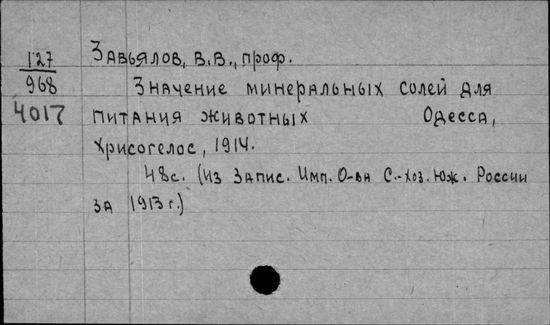 127
968
4017
Завьялов, В.В., проф.
Значение минеральных солей для
питания животных Одесса,
Хрисогелос, 1914.
48с. (из Запис. Имп. О-ва С.-хоз. Юж. России
за 1913 г.)